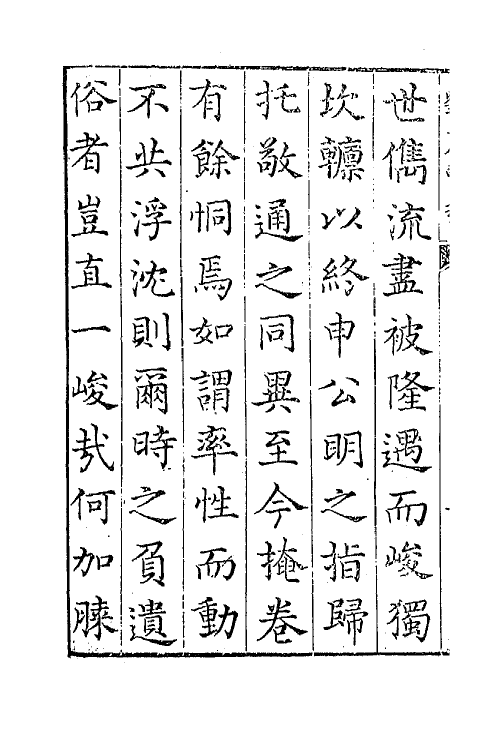 世儁流盡被隆遇而峻獨
坎𨏥以終申公明之指歸
托敬通之同異至今掩卷
有餘恫焉如謂率性而動
不共浮沈則爾時之負遺
俗者豈直一峻㢤何加脨